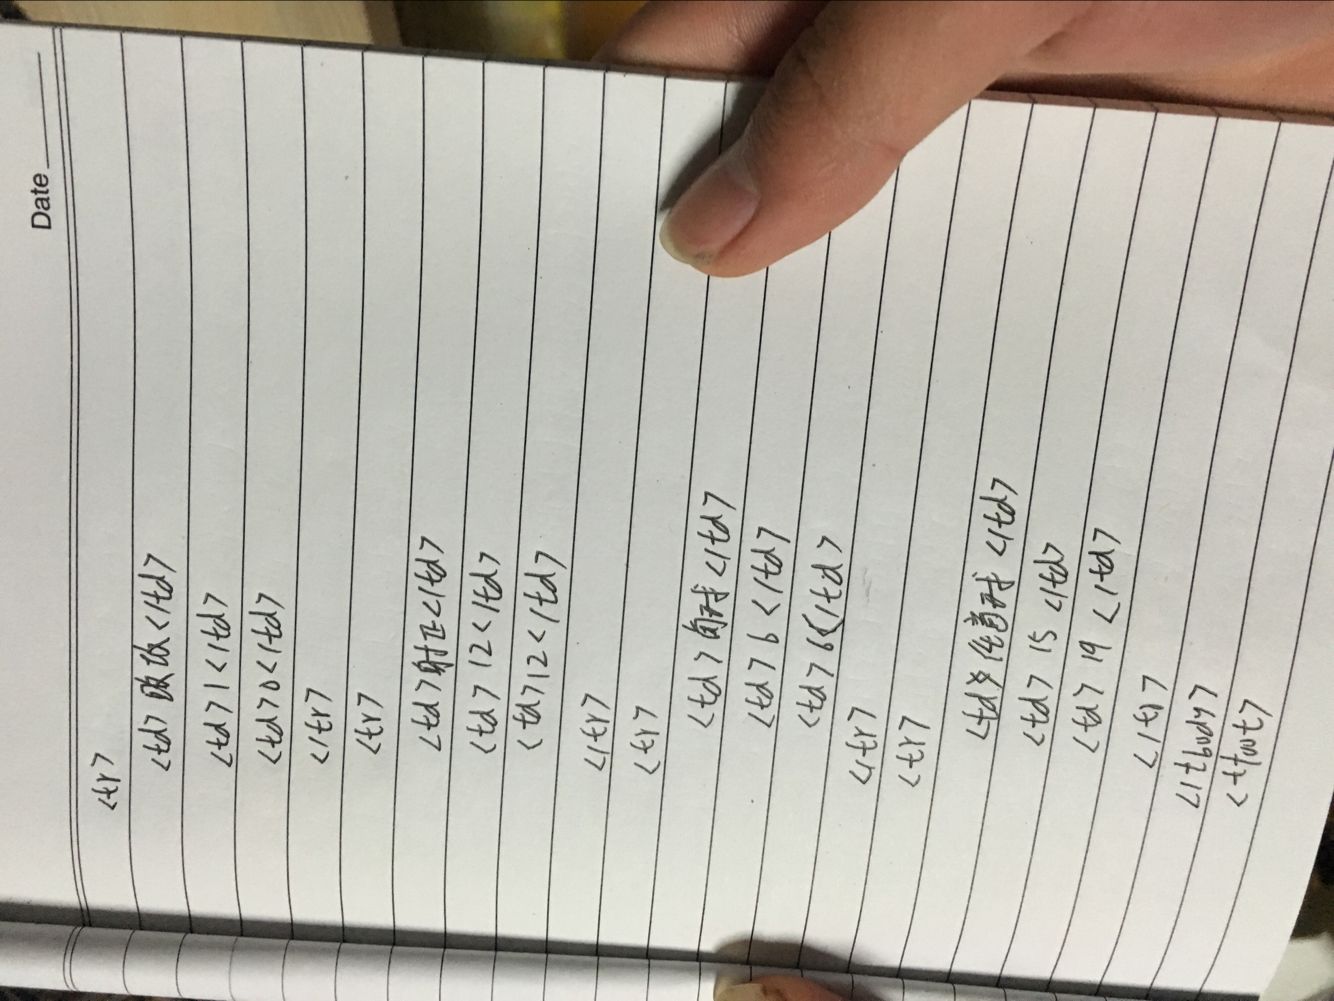 Date
<tr>
<td></td>
<td>1</td>
<td>0</td>
</tr>
<tr>
<td>射正</td>
<td>12</td>
<td>12</td>
</tr>
<tr>
<td>角球</td>
<td>6</td>
<td>6</td>
</tr>
<tr>
<td>任意球</td>
<td>15</td>
<td>19</td>
</tr>
</tbody>
<tfoot>